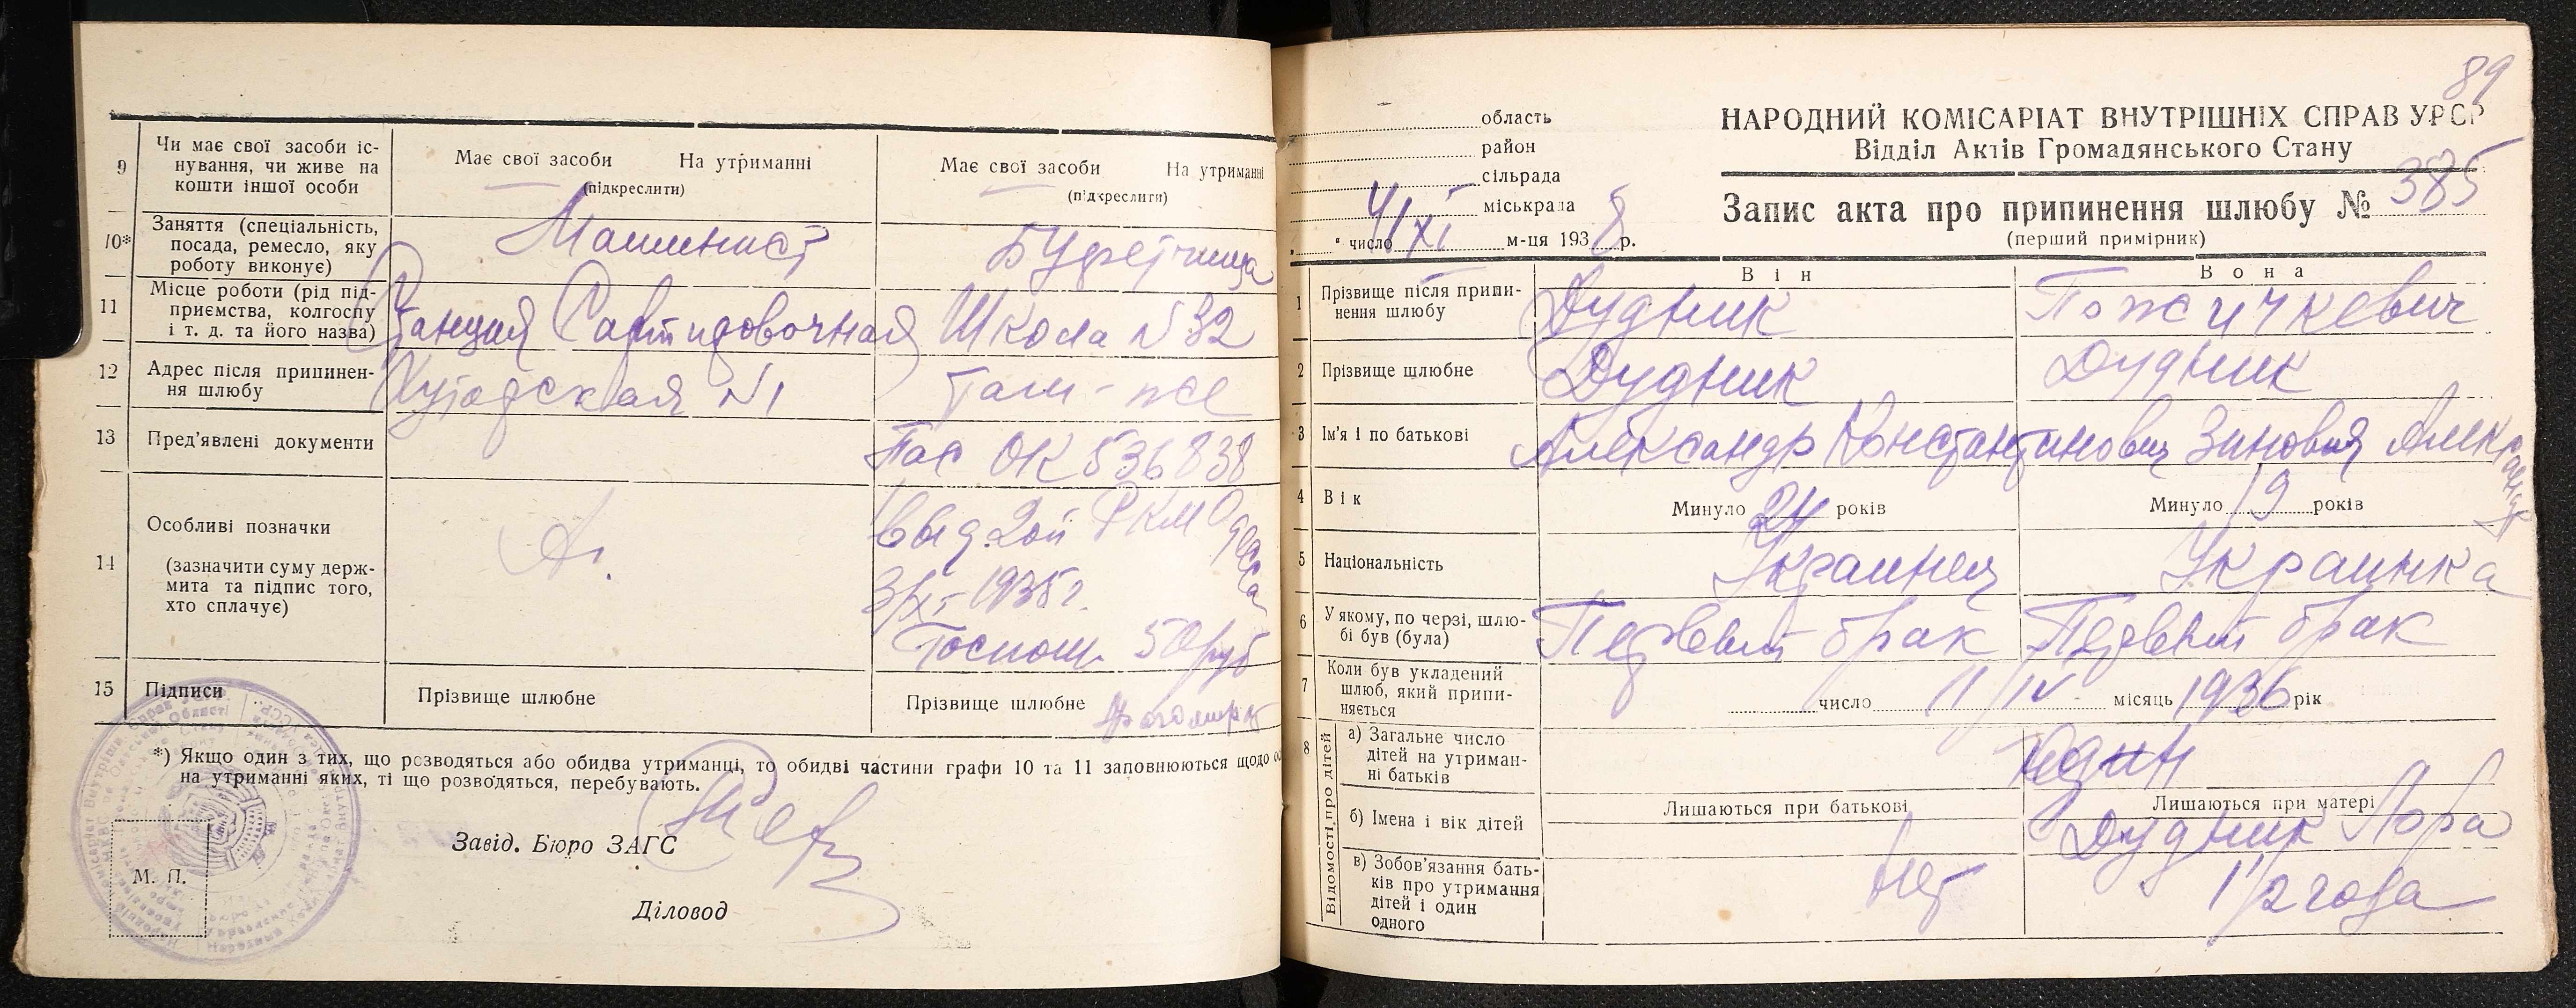 9
Чи має свої засоби іс-
нування, чи живе на
кошти іншої особи
Має свої засоби На утриманні
(підкреслити)
Має свої засоби На утриманні
(підкреслити)
10*
Заняття (спеціальність,
посада, ремесло, яку
роботу виконує)
Машинист
Буфетчица
11
Місце роботи (рід під-
приємства, колгоспу
і т. д. та його назва)
Станция Сортировочная
Школа N 32
12
Адрес після припинен-
ня шлюбу
Хуторская N 1
там-же
13
Пред'явлені документи
Пас ОК 536838
14
Особливі позначки
(зазначити суму держ-
мита та підпис того,
хто сплачує)
выд 2ой РКМ Одесса
3/XI-1935г.
Госпош. 50 руб
15
Підписи
Прізвище шлюбне
Прізвище шлюбне
*) Якщо один з тих, що розводяться або обидва утриманці, то обидві частини графи 10 та 11 заповнюються щодо
на утриманні яких, ті що розводяться, перебувають.
Завід. Бюро ЗАГС
М. П.
Діловод
89
область
район
сільрада
міськрада
" число 4/XI м-ця 1938 р.
НАРОДНИЙ КОМІСАРІАТ ВНУТРІШНІХ СПРАВ УРСР
Відділ Актів Громадянського Стану
Запис акта про припинення шлюбу № 385
(перший примірник)
Він
Вона
1
Прізвище після припи-
нення шлюбу
Дудник
Пожичкевич
2
Прізвище шлюбне
Дудник
Дудник
3
Ім'я і по батькові
Александр Константинович
Зиновия Александр
4
Вік
Минуло 24 років
Минуло 19 років
5
Національність
Украинец
Украинка
6
У якому, по черзі, шлю-
бі був (була)
Первый брак
Первый брак
7
Коли був укладений
шлюб, який припи-
няється
число 11/IV місяць 1936 рік
8
Відомості про дітей
а) Загальне число
дітей на утриман-
ні батьків
один
б) Імена і вік дітей
Лишаються при батькові
Лишаються при матері
Дудник Лора
в) Зобов'язання бать-
ків про утримання
дітей і один
одного
нет
1 1/2 года